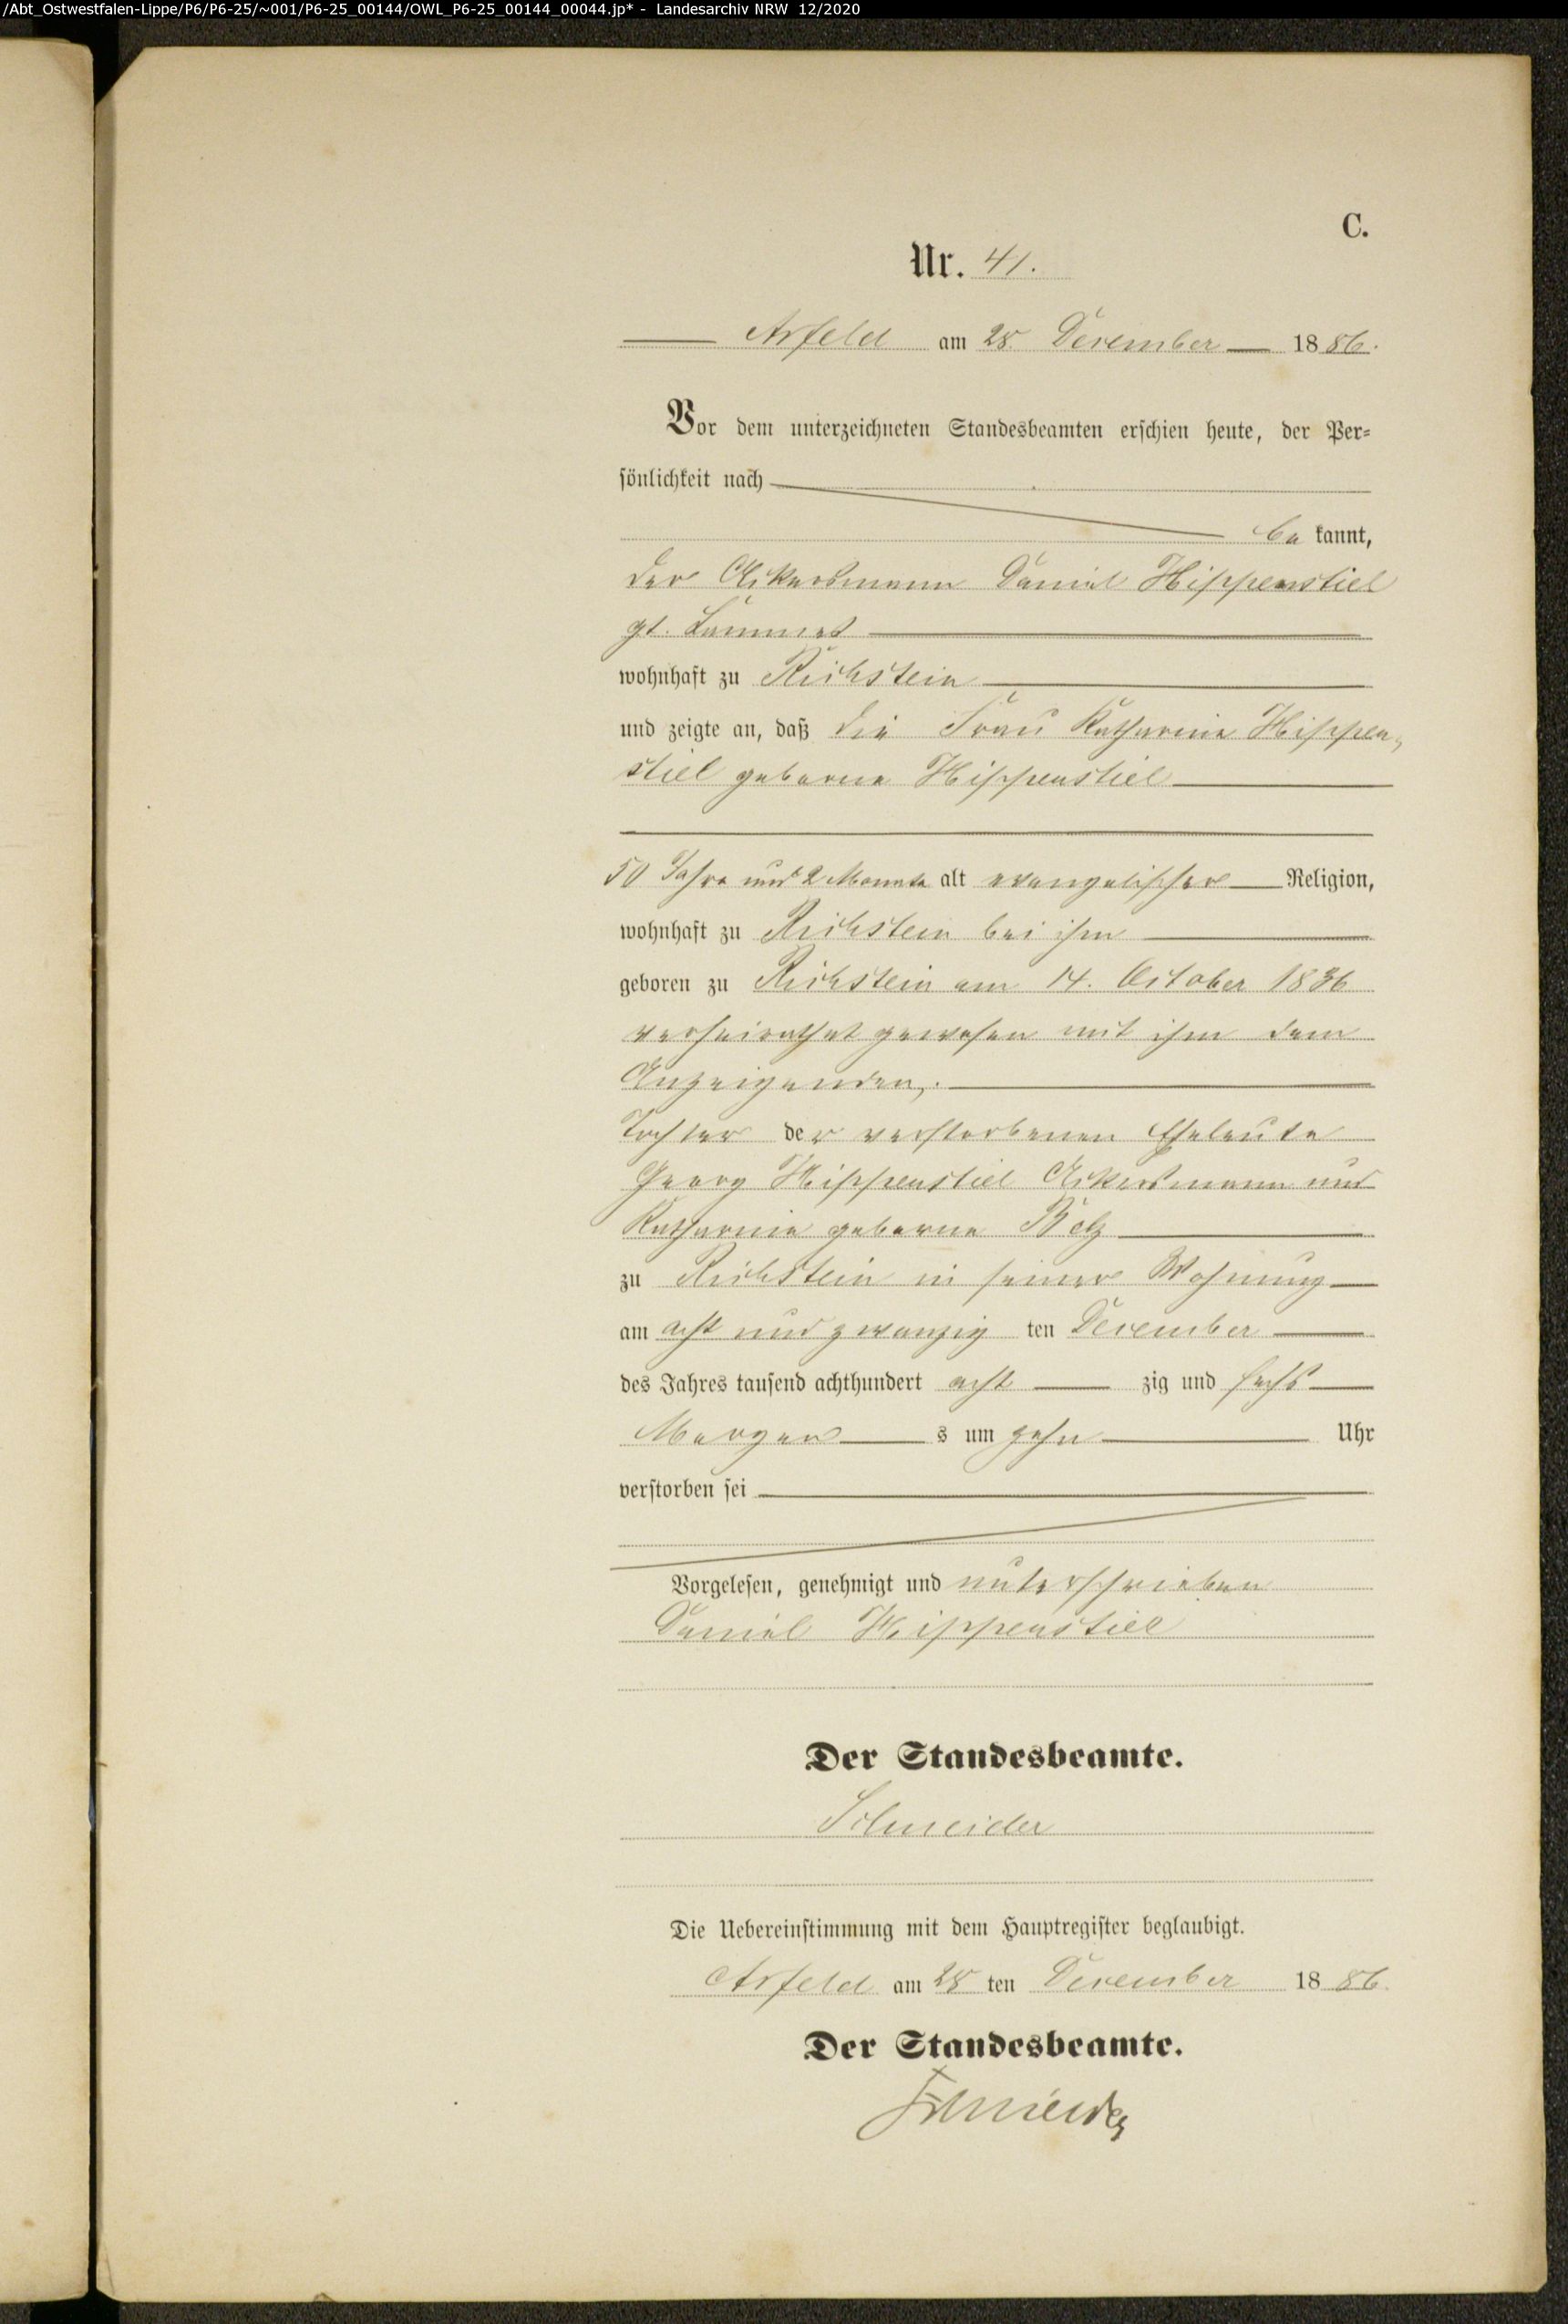 /Abt_Ostwestfalen-Lippe/P6/P6-25/~001/P6-25_00144/OWL_P6-25_00144_00044.jp* - Landesarchiv NRW 12/2020
C.
Nr. 41.
Arfeld am 28. December 1886.
Vor dem unterzeichneten Standesbeamten erschien heute, der Per-
sönlichkeit nach
be kannt,
der Ackersmann Daniel Hippenstiel
gt.
wohnhaft zu Richstein
und zeigte an, daß die Frau Katharine Hippen-
stiel geborne Hippenstiel
50 Jahre und 2 Monate alt evangelischer Religion,
wohnhaft zu Richstein bei ihm
geboren zu Richstein am 14. October 1836
verheirathet gewesen mit ihm dem
Anzeigenden,
Tochter der verstorbenen Eheleute
Georg Hippenstiel Ackersmann und
Katharine geborne Belz
zu Richstein in seiner Wohnung
am acht und zwanzig ten December
des Jahres tausend achthundert acht zig und sechs
Morgen s um zehn Uhr
verstorben sei
Vorgelesen, genehmigt und unterschrieben
Daniel Hippenstiel
Der Standesbeamte.
Schneider
Die Uebereinstimmung mit dem Hauptregister beglaubigt.
Arfeld am 28 ten December 1886.
Der Standesbeamte.
Schneider